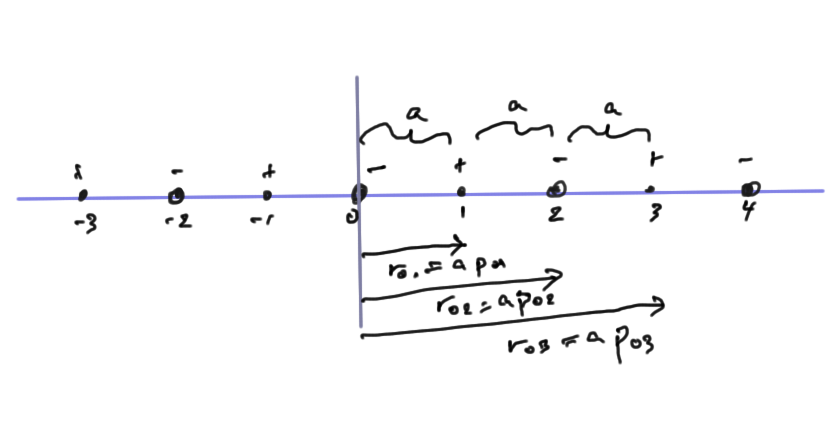 a a a
+ - + - + - + -
-3 -2 -1 0 1 2 3 4
r01 = a p01
r02 = a p02
r03 = a p03